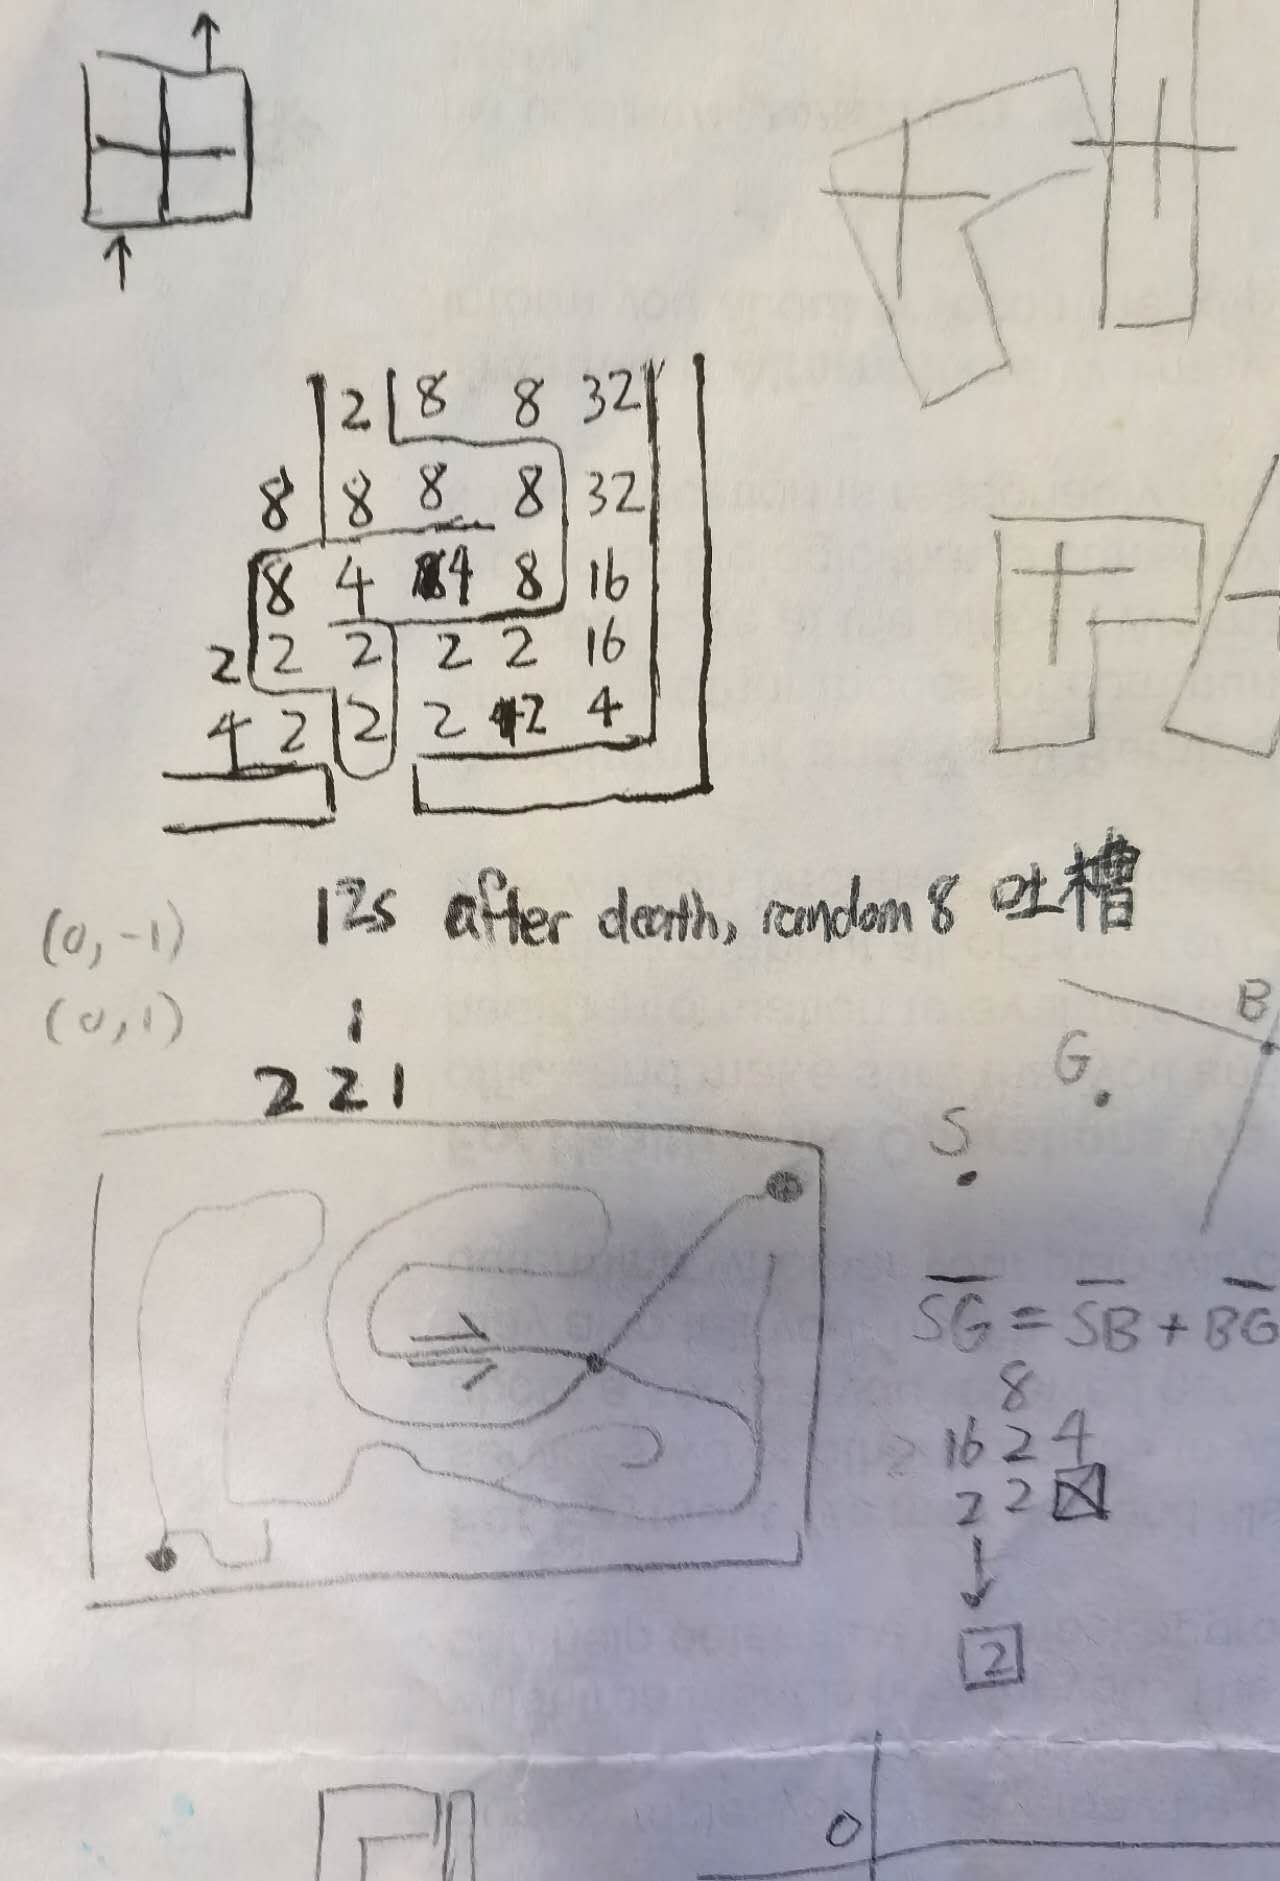 2 8 8 32
8 8 8 8 32
8 4 4 8 16
2 2 2 2 2 16
4 2 2 2 2 4
12s after death, random 8 吐槽
(0, -1)
(0, 1)
1
2 2 1
B
G
S
SG = SB + BG
8
16 2 4
2 2
2
0